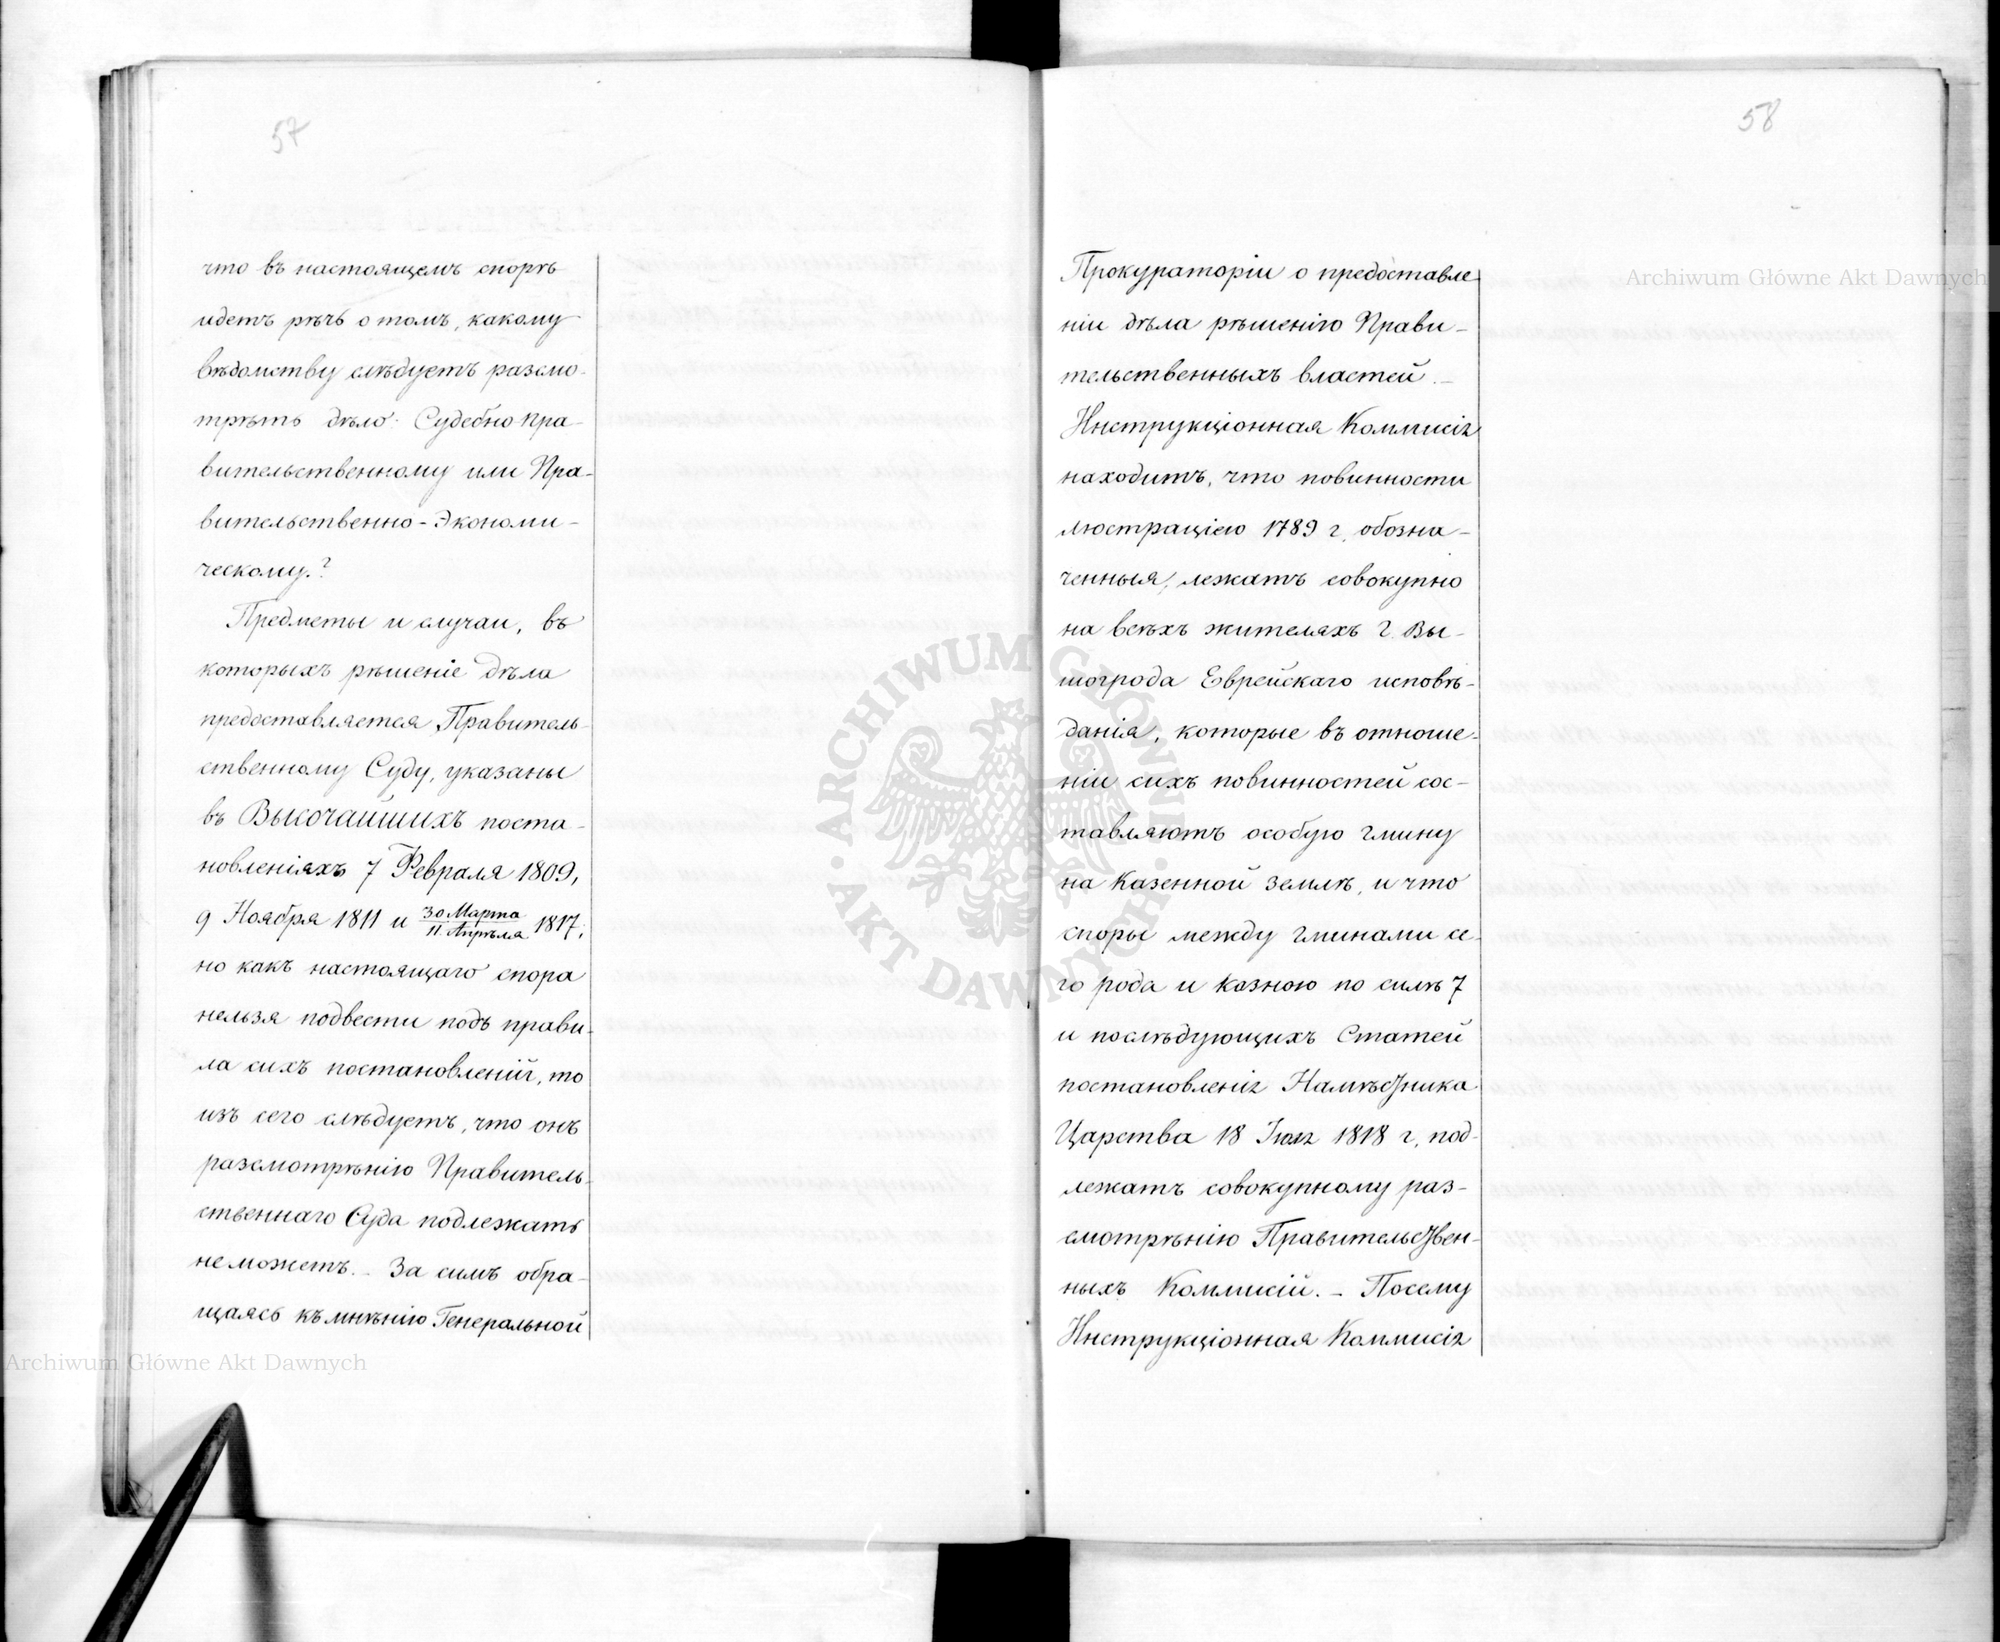 57
что въ настоящемъ спорѣ
идетъ рѣчь о томъ, какому
вѣдомству слѣдуетъ разсмо-
трѣть дѣло: Судебно Пра-
вительственному или Пра-
вительственно-Экономи-
ческому?
Предметы и случаи, въ
которыхъ рѣшеніе дѣла
предоставляется Правитель-
ственному Суду, указаны
въ Высочайшихъ поста-
новленіяхъ 7 Февраля 1809,
9 Ноября 1811 и 30 Марта/11 Апрѣля 1817;
но какъ настоящаго спора
нельзя подвести подъ прави-
ла сихъ постановленій, то
изъ сего слѣдуетъ, что онъ
разсмотрѣнію Правитель-
ственнаго Суда подлежать
не можетъ. - За симъ обра-
щаясь къ мнѣнію Генеральной
58
Прокураторіи о предоставле-
ніи дѣла рѣшенію Прави-
тельственныхъ властей. -
Инструкціонная Коммисія
находитъ, что повинности
люстраціею 1789 г. обозна-
ченныя, лежатъ совокупно
на всѣхъ жителяхъ г. Вы-
шогрода Еврейскаго исповѣ-
данія, которые въ отноше-
ніи сихъ повинностей сос-
тавляютъ особую гмину
на Казенной землѣ, и что
споры между гминами се-
го рода и Казною по силѣ 7
и послѣдующихъ Статей
постановленія Намѣстника
Царства 18 Іюля 1818 г. под-
лежатъ совокупному раз-
смотрѣнію Правительствен-
ныхъ Коммисій. - Посему
Инструкціонная Коммисія
Archiwum Główne Akt Dawnych
Archiwum Główne Akt Dawnych
ARCHIWUM GŁÓWNE AKT DAWNYCH